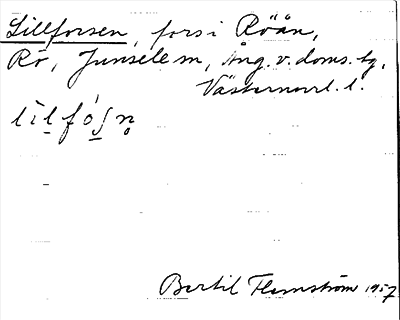 Lillforsen, fors i Röån,
Rö, Junsele sn, Ång. v. doms. tg,
Västernorrl. l.
lìlfó̱ʃn̥
Bertil Flemström 1957